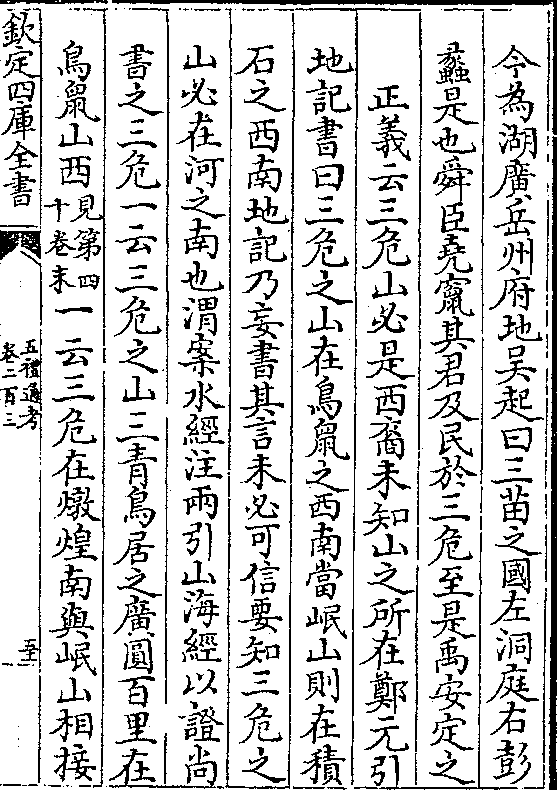 今為湖廣岳州府地吳起曰三苗之國左洞庭右彭
蠡是也舜臣堯竄其君及民於三危至是禹安定之
正義云三危山必是西裔未知山之所在鄭元引
地記書曰三危之山在鳥鼠之西南當岷山則在積
石之西南地記乃妄書其言未必可信要知三危之
山必在河之南也渭案水經注兩引山海經以證尚
書之三危一云三危之山三青鳥居之廣圓百里在
鳥鼠山西見第四十卷末一云三危在燉煌南與岷山相接
欽定四庫全書
五禮通考
卷二百三